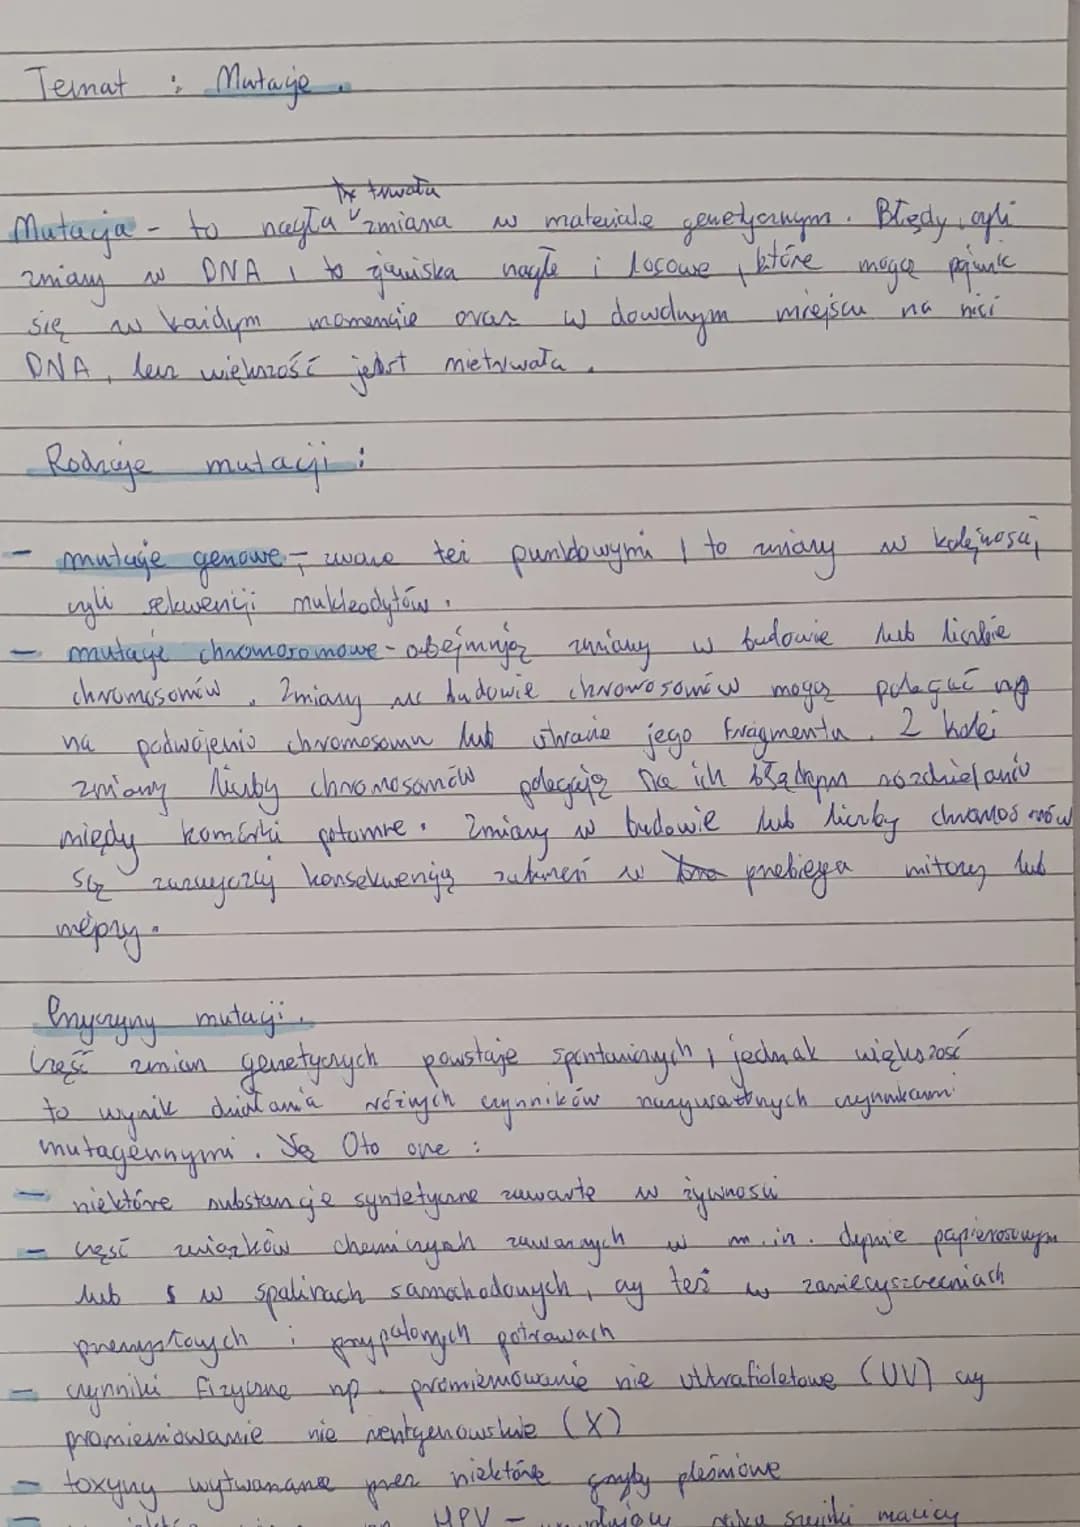 Temat : Mutacje.
trwała
Mutacja - to nagła zmiana w materiale genetycznym. Błędy, czyli
zmiany w DNA, to zjawiska nagłe i losowe, które mogą pojawić
się w każdym momencie oraz w dowolnym miejscu na nici
DNA, lecz większość jest nietrwała.
Rodzaje mutacji :
- mutacje genowe - zwane też punktowymi, to zmiany w kolejności,
czyli sekwencji nukleodytów.
- mutacje chromosomowe - obejmują zmiany w budowie lub liczbie
chromosomów. Zmiany w budowie chromosomów mogą polegać np
na podwojeniu chromosomu lub utracie jego fragmentu. Z kolei
zmiany liczby chromosomów polegają na ich błędnym rozdzielaniu
między komórki potomne. Zmiany w budowie lub liczby chromosomów
są zazwyczaj konsekwencją zaburzeń w przebiegu mitozy lub
mejozy.
Przyczyny mutacji.
Część zmian genetycznych powstaje spontanicznych, jednak większość
to wynik działania różnych czynników nazywanych czynnikami
mutagennymi. Oto one :
- niektóre substancje syntetyczne zawarte w żywności
- część związków chemicznych zawartych w m.in. dymie papierosowym
lub w spalinach samochodowych, czy też w zanieczyszczeniach
przemysłowych i przypalonych potrawach
- czynniki fizyczne np. promieniowanie nie ultrafioletowe (UV) czy
promieniowanie nie rentgenowskie (X)
- toxyny wytwarzane przez niektóre grzyby pleśniowe
HPV - raka szyjki macicy